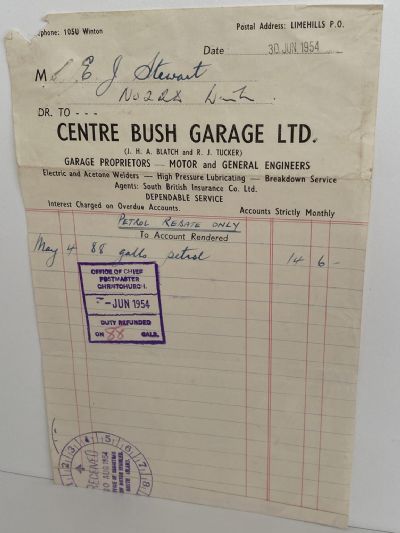 phone: 105U Winton
Postal Address: LIMEHILLS P.O.
Date 30 JUN 1954
M E J Stewart
No 2
DR. TO - - -
CENTRE BUSH GARAGE LTD.
(J. H. A. BLATCH and R. J. TUCKER)
GARAGE PROPRIETORS — MOTOR and GENERAL ENGINEERS
Electric and Acetone Welders — High Pressure Lubricating — Breakdown Service
Agents: South British Insurance Co. Ltd.
DEPENDABLE SERVICE
Interest Charged on Overdue Accounts. Accounts Strictly Monthly
PETROL REBATE ONLY
To Account Rendered
May 4 88 galls petrol 14 6 -
OFFICE OF CHIEF
POSTMASTER
CHRISTCHURCH 1.
- JUN 1954
DUTY REFUNDED
ON 88 GALS.
1 2 3 4 5 6 7 8
RECEIVED
AUG 1954